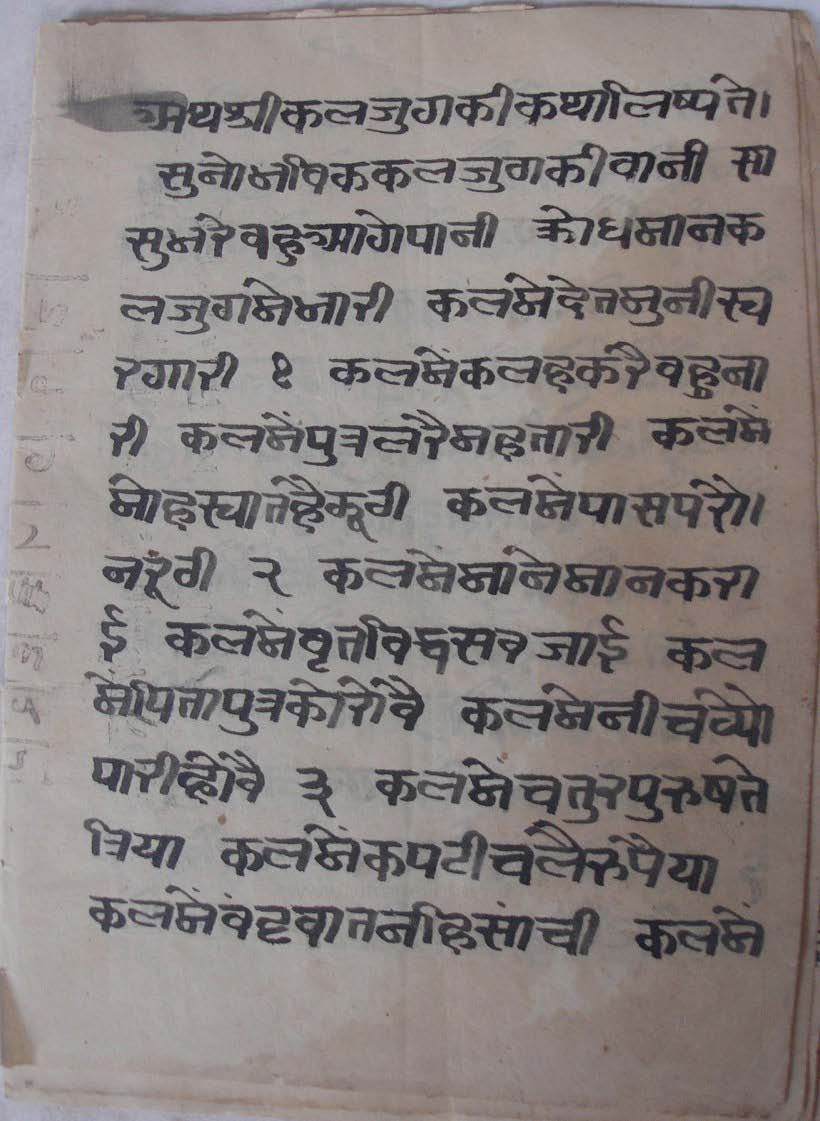 अथश्रीकलजुगकीकथालिष्यते।
सुनोभविककलजुगकीवानी सा
सुभरैवहुआगेपानी क्रोधमानक
लजुगमेभारी कलमेदेतमुनीस्व
रगारी १ कलमेंकलहकरैवहुना
री कलमेंपुत्रलरैमहतारी कलमे
मोहस्यातहैकूगी कलमेंपासपरो।
नरूंगी २ कलमेमानेमानकरा
ई कलमेवृतविद्वसवजाई कल
मेपितापुत्रकोरोवै कलमेनीचव्यो
पारीहोवै ३ कलमेंचतुरपुरुषते
त्रिया कलमेंकपटीचलैरुपैया
कलमेंवहवातनहिसांची कलमें